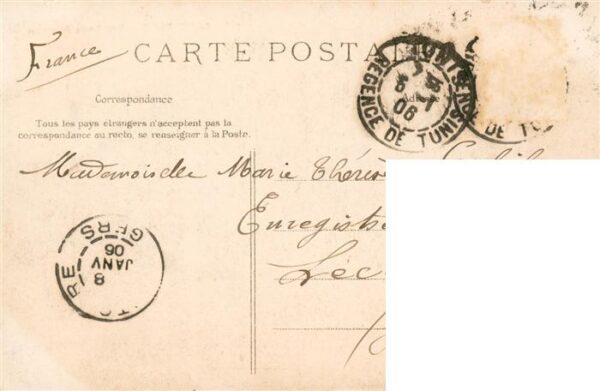 France
CARTE POSTA
Correspondance
Tous les pays étrangers n'acceptent pas la
correspondance au recto, se renseigner à la Poste.
Adresse
TUNIS
8 -1
06
REGENCE DE TUNIS
DE TU
Mademoiselle Marie Thérès
Enregistre
Léc
RE
GERS
8
JANV
06